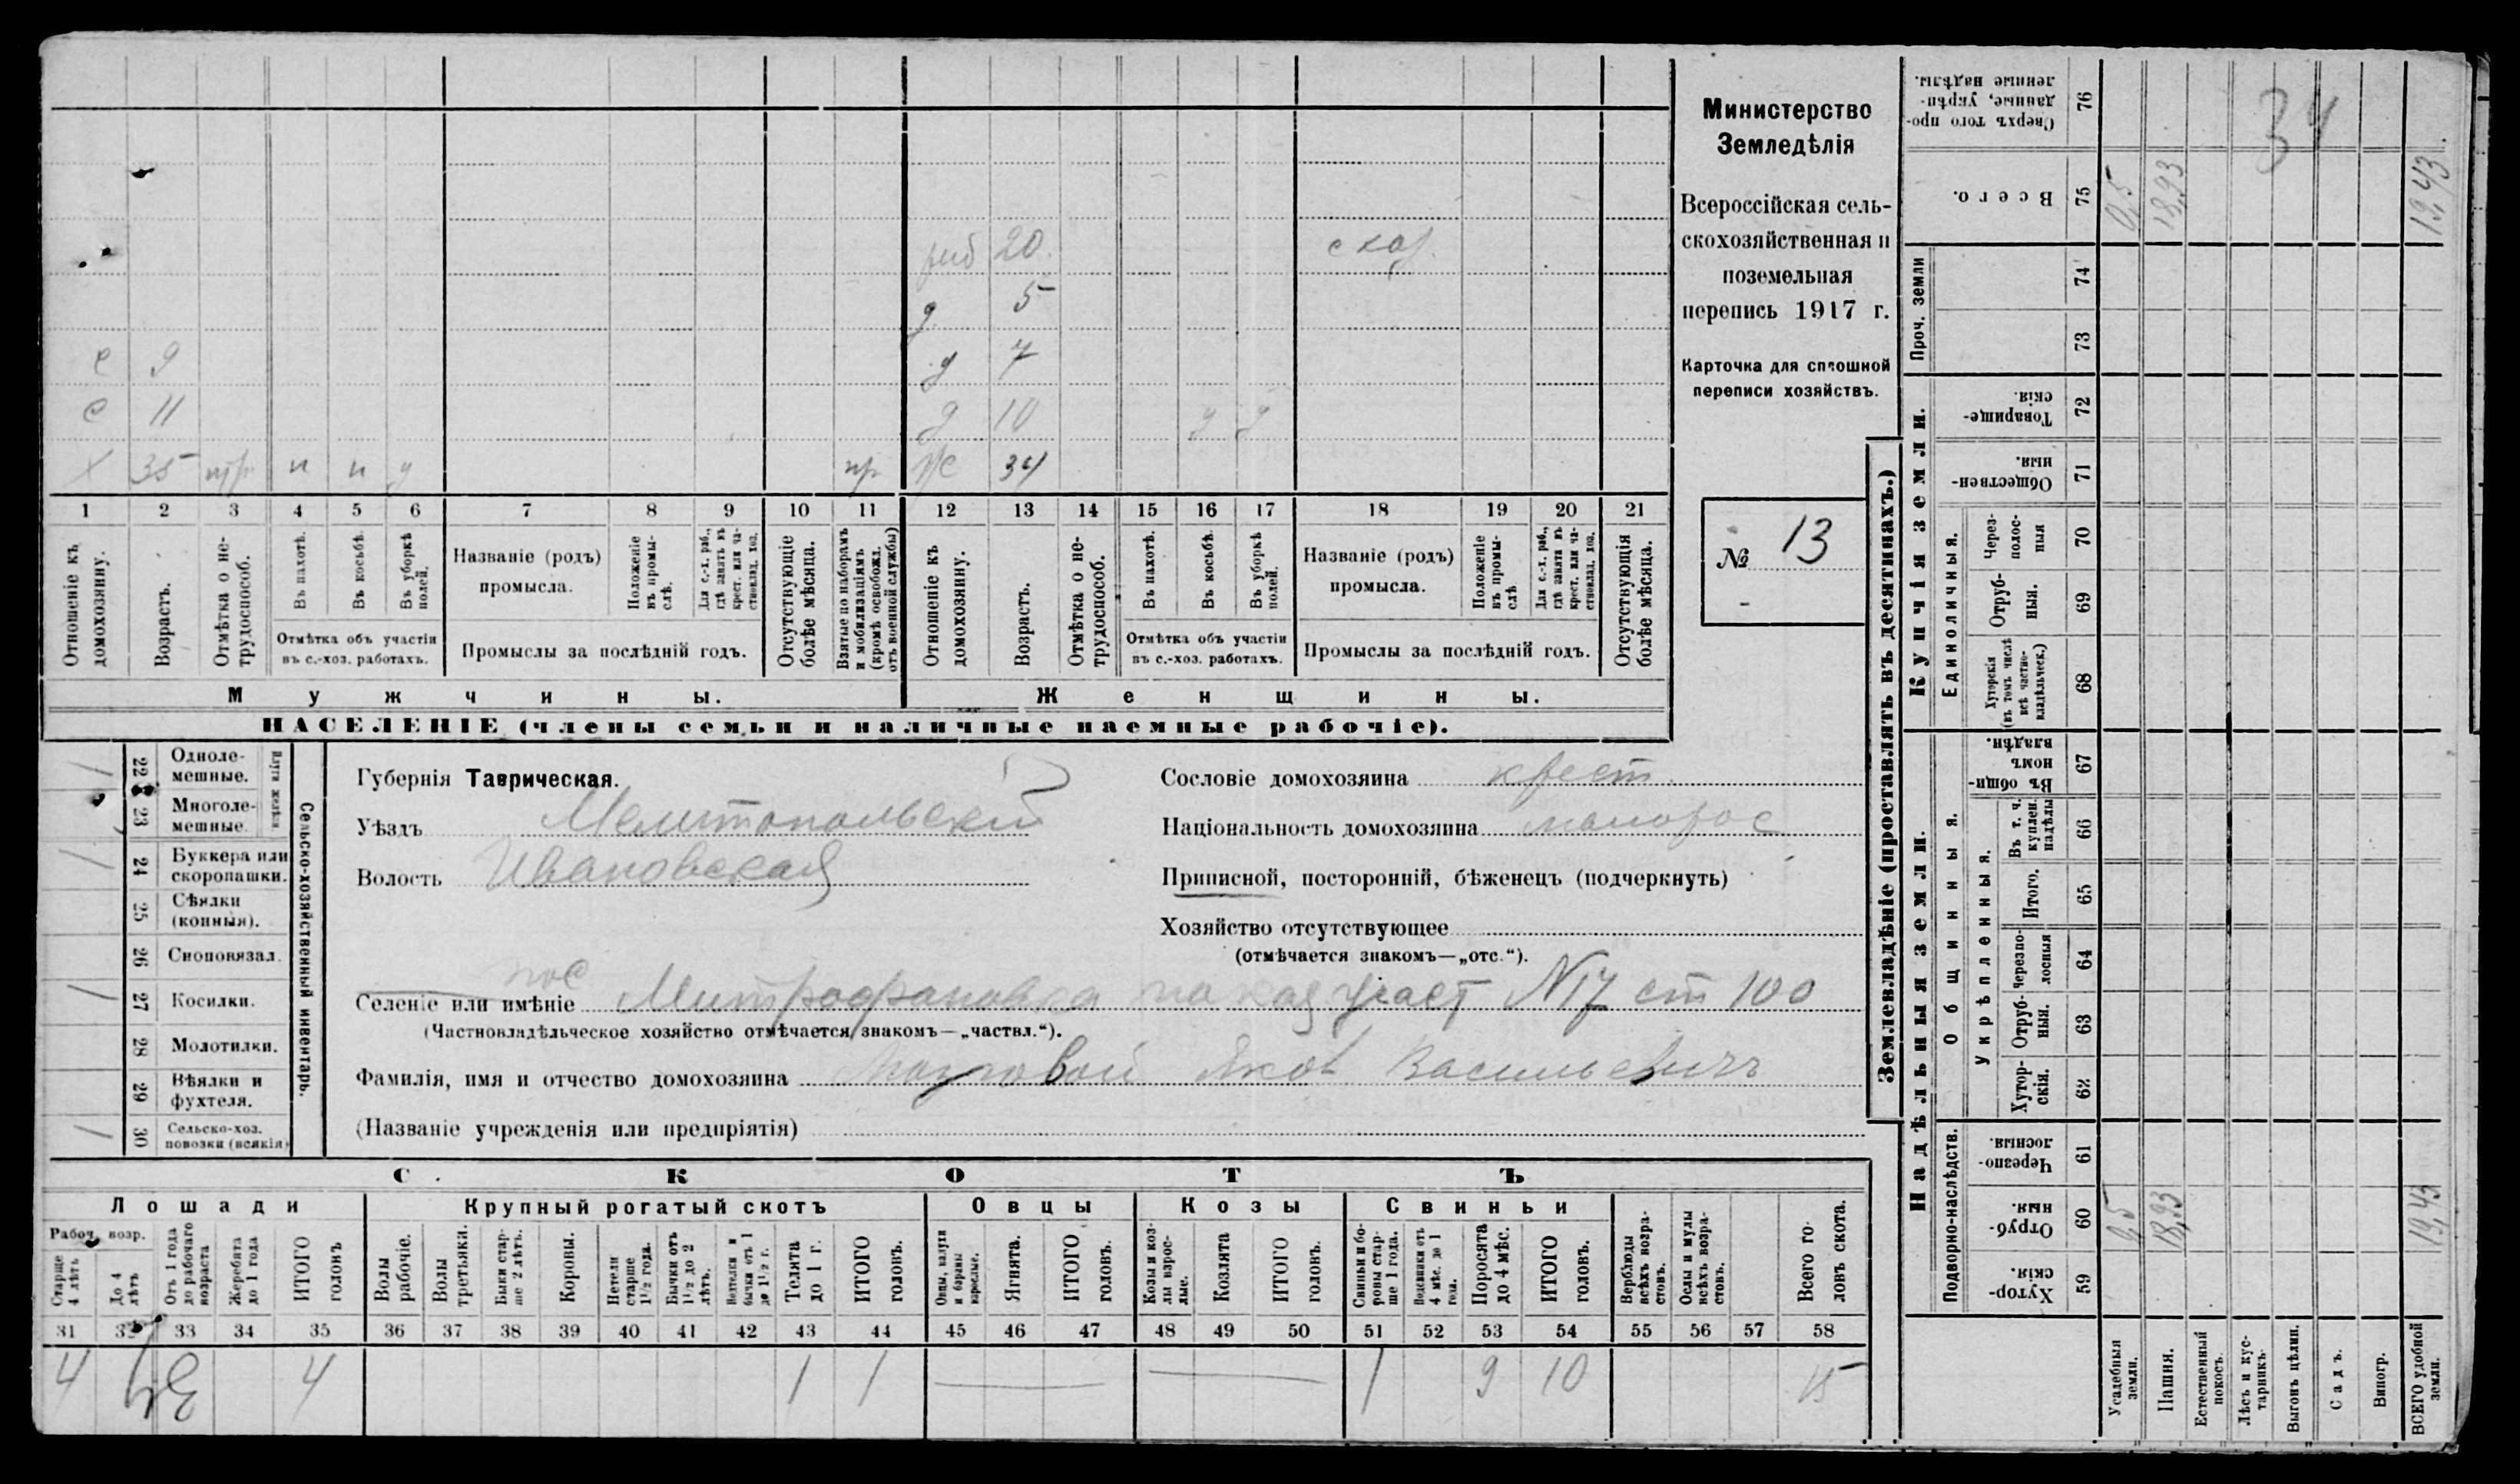 Министерство
Земледѣлія
Всероссійская сель-
скохозяйственная и
поземельная
перепись 1917 г.
Карточка для сплошной
переписи хозяйствъ.
№ 13
раб 20. с хоз.
д 5
с 9 д 7
с 11 д 10 у у
х 35 п п у пр ж 34
1 2 3 4 5 6 7 8 9 10 11 12 13 14 15 16 17 18 19 20 21
Отношеніе къ домохозяину.
Возрастъ.
Отмѣтка о не-трудоспособ.
Въ пахотѣ.
Въ косьбѣ.
Въ уборкѣ полей.
Отмѣтка объ участіи въ с.-хоз. работахъ.
Названіе (родъ) промысла.
Положеніе въ промы-слѣ.
Для с.-х. раб., гдѣ занятъ въ крест. или ча-стновлад. хоз.
Промыслы за послѣдній годъ.
Отсутствующіе болѣе мѣсяца.
Взятые по наборамъ и мобилизаціямъ (кромѣ освобожд. отъ военной службы)
Отношеніе къ домохозяину.
Возрастъ.
Отмѣтка о не-трудоспособ.
Въ пахотѣ.
Въ косьбѣ.
Въ уборкѣ полей.
Отмѣтка объ участіи въ с.-хоз. работахъ.
Названіе (родъ) промысла.
Положеніе въ промы-слѣ
Для с.-х. раб., гдѣ занята въ крест. или ча-стновлад. хоз.
Промыслы за послѣдній годъ.
Отсутствующія болѣе мѣсяца.
Мужчины. Женщины.
НАСЕЛЕНІЕ (члены семьи и наличные наемные рабочіе).
Сельско-хозяйственный инвентарь.
22 Одноле-мешные.
23 Многоле-мешные.
24 Буккера или скоропашки.
25 Сѣялки (конныя).
26 Сноповязал.
27 Косилки.
28 Молотилки.
29 Вѣялки и фухтеля.
30 Сельско-хоз. повозки (всякія)
Губернія Таврическая.
Уѣздъ Мелитопольскій
Волость Ивановская
Сословіе домохозяина крест.
Національность домохозяина малорос
Приписной, посторонній, бѣженецъ (подчеркнуть)
Хозяйство отсутствующее
(отмѣчается знакомъ—„отс.“).
пос
Селеніе или имѣніе Митрофановка участ N17 ст 100
(Частновладѣльческое хозяйство отмѣчается знакомъ—„частвл.“).
Фамилія, имя и отчество домохозяина Яков Васильевичъ
(Названіе учрежденія или предпріятія)
СКОТЪ
Лошади Крупный рогатый скотъ Овцы Козы Свиньи
Рабоч. возр.
Старше 4 лѣтъ
До 4 лѣтъ
Отъ 1 года до рабочаго возраста
Жеребята до 1 года
ИТОГО головъ
Волы рабочіе.
Волы третьяки.
Быки стар-ше 2 лѣтъ.
Коровы.
Нетели старше 1½ года.
Бычки отъ 1½ до 2 лѣтъ.
Нетелки и бычки отъ 1 до 1½ г.
Телята до 1 г.
ИТОГО головъ.
Овцы, валухи и бараны взрослые.
Ягнята.
ИТОГО головъ.
Козы и коз-лы взрос-лые.
Козлята
ИТОГО головъ.
Свиньи и бо-ровы стар-ше 1 года.
Подсвинки отъ 4 мѣс. до 1 года.
Поросята до 4 мѣс.
ИТОГО головъ.
Верблюды всѣхъ возра-стовъ.
Ослы и мулы всѣхъ возра-стовъ.
Всего го-ловъ скота.
31 32 33 34 35 36 37 38 39 40 41 42 43 44 45 46 47 48 49 50 51 52 53 54 55 56 57 58
4 4 1 1 1 9 10 15
Землевладѣніе (проставлять въ десятинахъ.)
Надѣльныя земли. Купчія земли. Проч. земли
Подворно-наслѣдств.
Общинныя.
Укрѣпленныя.
Единоличныя.
Хутор-скія. 59
Отруб-ныя. 60
Черезпо-лосныя. 61
Хутор-скія. 62
Отруб-ныя. 63
Черезпо-лосныя 64
Итого. 65
Въ т. ч. куплен. надѣлы 66
Въ общин-номъ владѣн. 67
Хуторскія (въ томъ числѣ всѣ частно-владѣльческ.) 68
Отруб-ныя. 69
Через-полос-ныя 70
Обществен-ныя. 71
Товарище-скія. 72
73
74
Всего. 75
Сверхъ того про-данные, укрѣп-ленные надѣлы. 76
Усадебныя земли. 0,5 0,5
Пашня. 18,93 18,93
Естественный покосъ.
Лѣсъ и кус-тарникъ.
Выгонъ цѣлин.
Садъ.
Виногр.
ВСЕГО удобной земли. 19,43 19,43
34